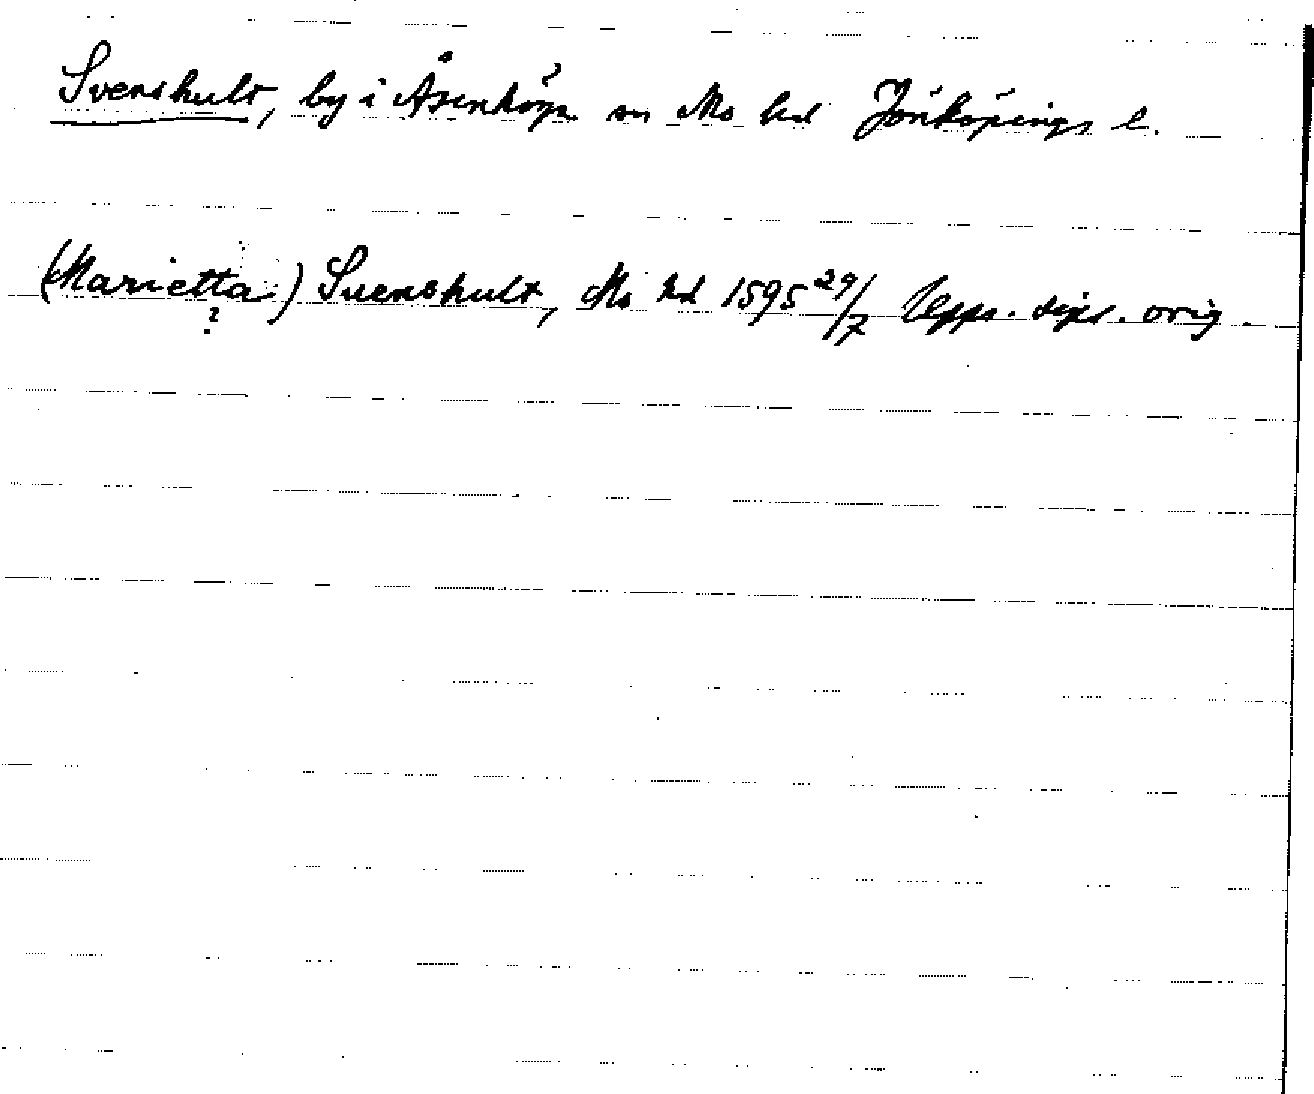 Svenshult, by i Åsenhöga sn Mo hd Jönköpings l.
(Marietta) Suenshult, Mo hd 1595 29/7 Upps. dipl. orig.
?